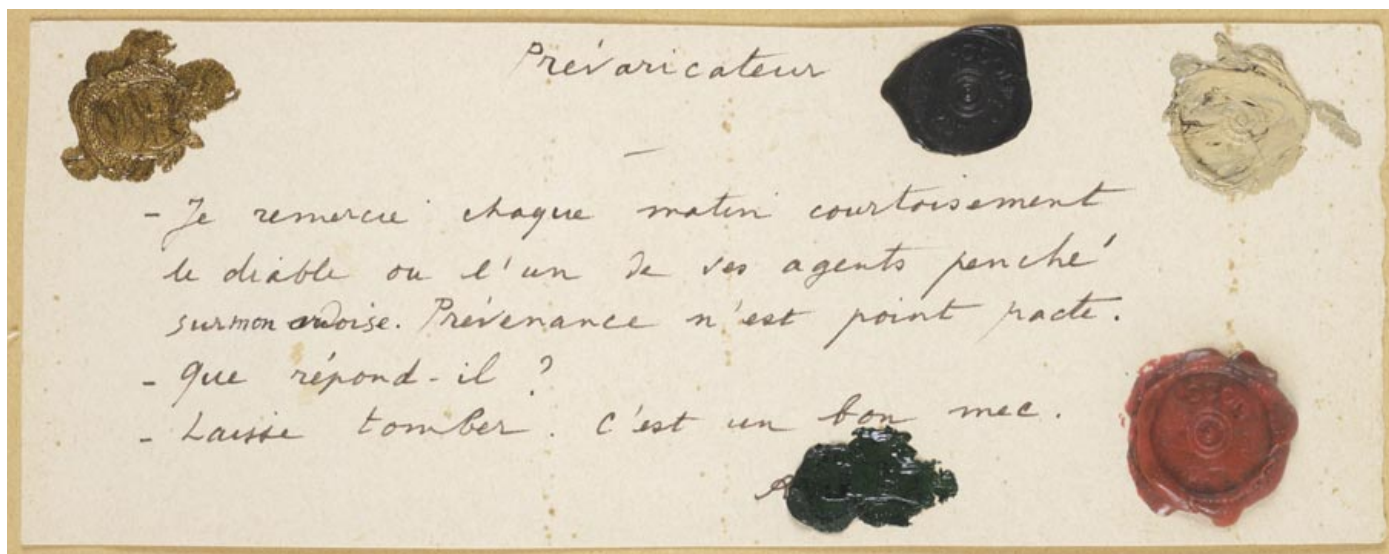 Prévaricateur
- Je remercie chaque matin courtoisement
le diable ou l'un de ses agents penché
sur mon ardoise. Prévenance n'est point pacte.
- Que répond-il ?
- Laisse tomber. C'est un bon mec.